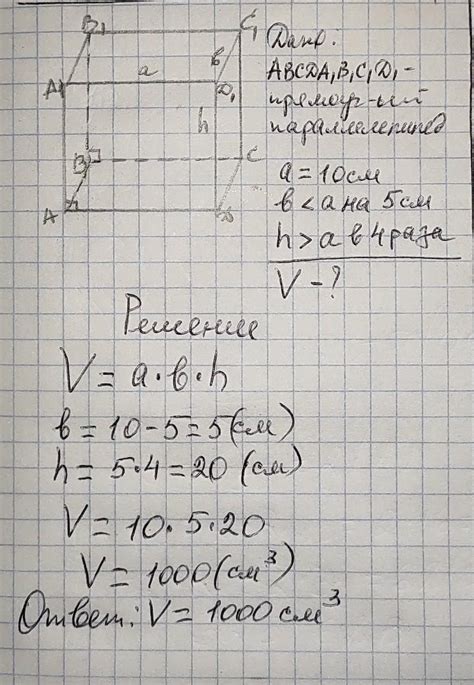 B₁ C₁
a в
A₁ D₁
h
B C
A D
Дано:
ABCDA₁B₁C₁D₁-
прямоуг-ый
параллелепипед
a = 10см
в < a на 5см
h > a в 4 раза
V - ?
Решение
V = a · в · h
в = 10 - 5 = 5 (см)
h = 5 · 4 = 20 (см)
V = 10 · 5 · 20
V = 1000 (см³)
Ответ: V = 1000 см³